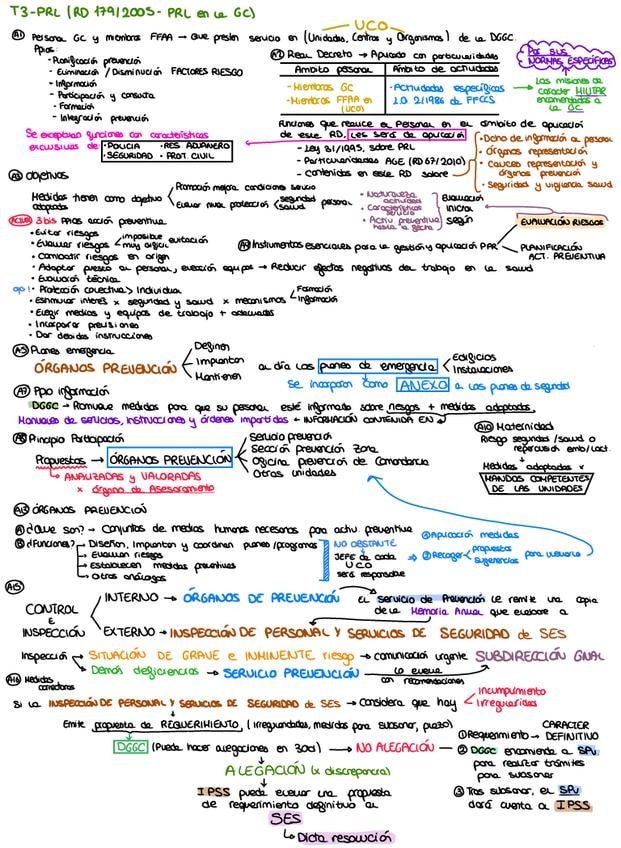 T3-PRL (RD 179/2005 - PRL en la GC)
UCO
A1 Personal GC y miembros FFAA → Que presten servicio en (Unidades, Centros y Organismos) de la DGGC.
Ppios:
- Planificación prevención
- Eliminación / Disminución FACTORES RIESGO
- Información
- Participación y consulta
- Formación
- Integración prevención
Real Decreto → Aplicado con particularidades
Ámbito personal
Ámbito de actividades
- Miembros GC
- Miembros FFAA en (UCO)
- Actividades específicas
LO 2/1986 de FFCCS
Por sus NORMAS ESPECÍFICAS
Las misiones de carácter MILITAR encomendadas a la GC.
Funciones que realice el Personal en el ámbito de aplicación
de este RD, Les será de aplicación
- Ley 31/1995, sobre PRL
- Particularidades AGE (RD 67/2010)
- contenidas en este RD sobre
• Dcho de información al personal
• Órganos representación
• Cauces representación y órganos prevención
• Seguridad y vigilancia salud
Se exceptúan funciones con características
exclusivas de:
• POLICIA • RES. ADUANERO
• SEGURIDAD • PROT. CIVIL
A3 Objetivos
Medidas tienen como objetivo
adoptadas
Promoción mejora condiciones servicio
Elevar nivel protección
seguridad
salud
personal
• Naturaleza actividad
• Características servicio
• Activ preventiva hasta la fecha
Evaluación inicial según
EVALUACIÓN RIESGOS
A4 Instrumentos esenciales para la gestión y aplicación PAR
PLANIFICACIÓN ACT. PREVENTIVA
3 bis PPios acción preventiva
• Evitar riesgos
• Evaluar riesgos
imposible
muy difícil
evitación
• Combatir riesgos en origen
• Adaptar puesto al personal, elección equipos → Reducir efectos negativos del trabajo en la salud
• Evolución técnica
ojo! • Protección colectiva > Individual
• Estimular interés x seguridad y salud x mecanismos
Formación
Información
• Elegir medios y equipos de trabajo + adecuados
• Incorporar previsiones
• Dar debidas instrucciones
A5 Planes emergencia
ÓRGANOS PREVENCIÓN
Definen
Implantan
Mantienen
al día los planes de emergencia
Edificios
Instalaciones
Se incorporan como ANEXO a los planes de seguridad
A7 Ppio información
DGGC → Promueve medidas para que su personal esté informado sobre riesgos + medidas adoptadas.
Manuales de servicios, instrucciones y órdenes impartidas ← INFORMACIÓN CONTENIDA EN
A8 Principio Participación
Propuestas → ÓRGANOS PREVENCIÓN
Servicio prevención
Sección prevención Zona
Oficina prevención de Comandancia
Otras unidades
ANALIZADAS y VALORADAS
x órgano de Asesoramiento
A10 Maternidad
Riesgo seguridad / salud o
repercusión emb/lact.
Medidas adoptadas x
MANDOS COMPETENTES
DE LAS UNIDADES
ÓRGANOS PREVENCIÓN
A ¿Que son? → Conjuntos de medios humanos necesarios para activ. preventiva
B ¿Funciones? → Diseñan, implantan y coordinan planes/programas
→ Evaluan riesgos
→ Establecen medidas preventivas
→ Otras análogas
NO OBSTANTE
JEFE de cada
UCO
será responsable
① Aplicación medidas
② Recoger
propuestas
sugerencias
A15
CONTROL
E
INSPECCIÓN
INTERNO → ÓRGANOS DE PREVENCIÓN
EL servicio de Prevención le remite una copia
de la Memoria Anual que elabore a
EXTERNO → INSPECCIÓN DE PERSONAL Y SERVICIOS DE SEGURIDAD de SES
Inspección
SITUACIÓN DE GRAVE e INMINENTE riesgo → comunicación urgente SUBDIRECCIÓN GNAL
Demás deficiencias → SERVICIO PREVENCIÓN
lo eleva
con recomendaciones
A16 Medidas correctoras
Si la INSPECCIÓN DE PERSONAL Y SERVICIOS DE SEGURIDAD de SES → Considera que hay
Incumplimiento
Irregularidades
Emite propuesta de REQUERIMIENTO, (Irregularidades, medidas para subsanar, plazo)
DGGC (Puede hacer alegaciones en 30d) → NO ALEGACIÓN
ALEGACIÓN (x discrepancia)
IPSS puede elevar una propuesta
de requerimiento definitivo al
SES
Dicta resolución
CARACTER
① Requerimiento → DEFINITIVO
② DGGC encomienda a SPu
para realizar trámites
para subsanar
③ Tras subsanar, el SPu
dará cuenta a IPSS